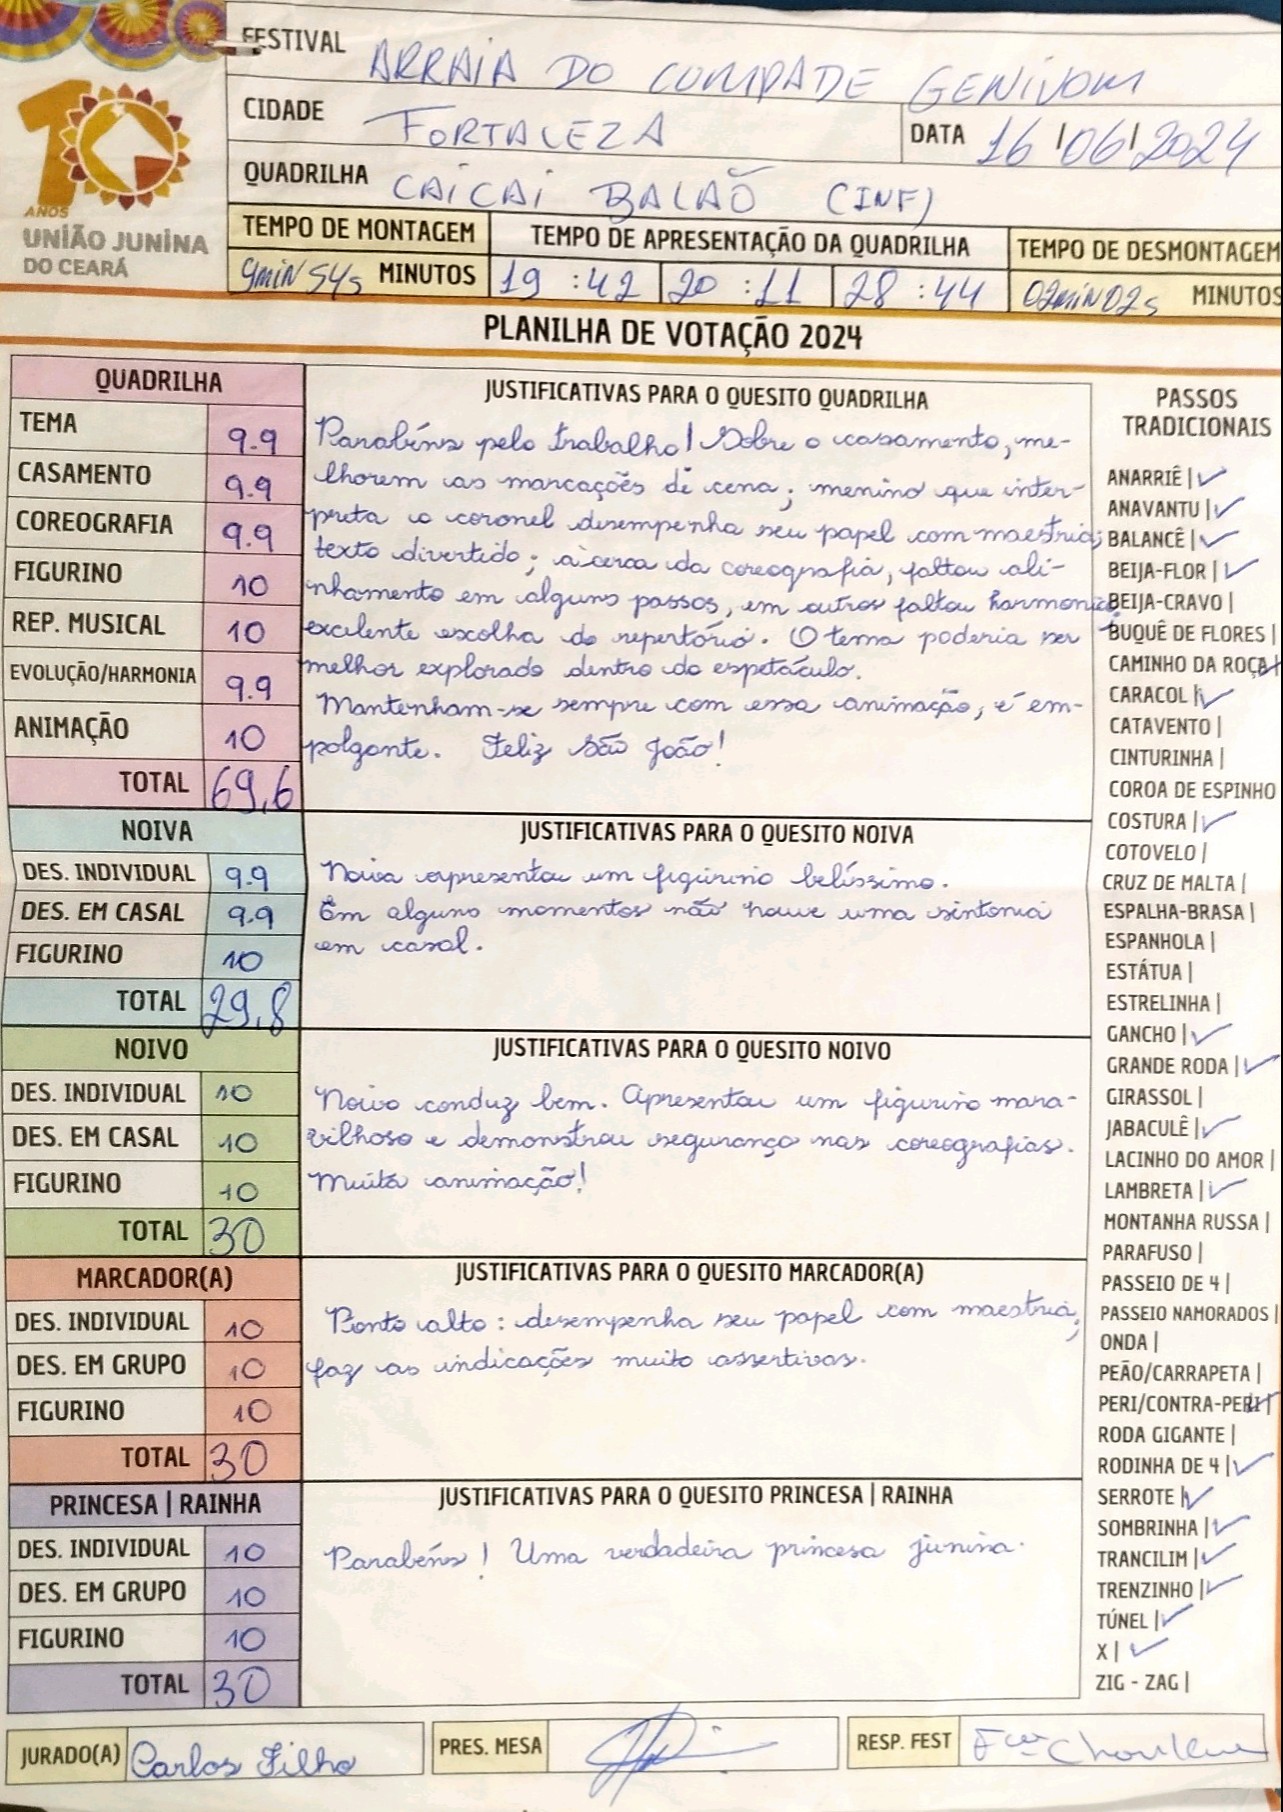 FESTIVAL ARRAIA DO COMPADE GENIVOM
CIDADE FORTALEZA DATA 16/06/2024
QUADRILHA CAICAI BALAÕ (INF)
10 ANOS
UNIÃO JUNINA
DO CEARÁ
TEMPO DE MONTAGEM TEMPO DE APRESENTAÇÃO DA QUADRILHA TEMPO DE DESMONTAGEM
9min54s MINUTOS 19:42 20:11 28:44 02min02s MINUTOS
PLANILHA DE VOTAÇÃO 2024
QUADRILHA
TEMA 9.9
CASAMENTO 9.9
COREOGRAFIA 9.9
FIGURINO 10
REP. MUSICAL 10
EVOLUÇÃO/HARMONIA 9.9
ANIMAÇÃO 10
TOTAL 69,6
JUSTIFICATIVAS PARA O QUESITO QUADRILHA
Parabéns pelo trabalho! Sobre o casamento, me-
lhorem as marcações de cena; menino que inter-
preta o coronel desempenha seu papel com maestria;
texto divertido; acerca da coreografia, faltou ali-
nhamento em alguns passos, em outros faltou harmonia;
excelente escolha do repertório. O tema poderia ser
melhor explorado dentro do espetáculo.
Mantenham-se sempre com essa animação, é em-
polgante. Feliz São João!
NOIVA
DES. INDIVIDUAL 9.9
DES. EM CASAL 9.9
FIGURINO 10
TOTAL 29,8
JUSTIFICATIVAS PARA O QUESITO NOIVA
Noiva apresentou um figurino belíssimo.
Em alguns momentos não houve uma sintonia
em casal.
NOIVO
DES. INDIVIDUAL 10
DES. EM CASAL 10
FIGURINO 10
TOTAL 30
JUSTIFICATIVAS PARA O QUESITO NOIVO
Noivo conduz bem. Apresentou um figurino mara-
vilhoso e demonstrou segurança nas coreografias.
Muita animação!
MARCADOR(A)
DES. INDIVIDUAL 10
DES. EM GRUPO 10
FIGURINO 10
TOTAL 30
JUSTIFICATIVAS PARA O QUESITO MARCADOR(A)
Ponto alto: desempenha seu papel com maestria,
faz as indicações muito assertivas.
PRINCESA | RAINHA
DES. INDIVIDUAL 10
DES. EM GRUPO 10
FIGURINO 10
TOTAL 30
JUSTIFICATIVAS PARA O QUESITO PRINCESA | RAINHA
Parabéns! Uma verdadeira princesa junina.
PASSOS
TRADICIONAIS
ANARRIÊ | ✓
ANAVANTU | ✓
BALANCÊ | ✓
BEIJA-FLOR | ✓
BEIJA-CRAVO |
BUQUÊ DE FLORES |
CAMINHO DA ROÇA | ✓
CARACOL | ✓
CATAVENTO |
CINTURINHA |
COROA DE ESPINHO
COSTURA | ✓
COTOVELO |
CRUZ DE MALTA |
ESPALHA-BRASA |
ESPANHOLA |
ESTÁTUA |
ESTRELINHA |
GANCHO | ✓
GRANDE RODA | ✓
GIRASSOL |
JABACULÊ | ✓
LACINHO DO AMOR |
LAMBRETA | ✓
MONTANHA RUSSA |
PARAFUSO |
PASSEIO DE 4 |
PASSEIO NAMORADOS |
ONDA |
PEÃO/CARRAPETA |
PERI/CONTRA-PERI | ✓
RODA GIGANTE |
RODINHA DE 4 | ✓
SERROTE | ✓
SOMBRINHA | ✓
TRANCILIM | ✓
TRENZINHO | ✓
TÚNEL | ✓
X | ✓
ZIG - ZAG |
JURADO(A) Carlos Filho PRES. MESA RESP. FEST